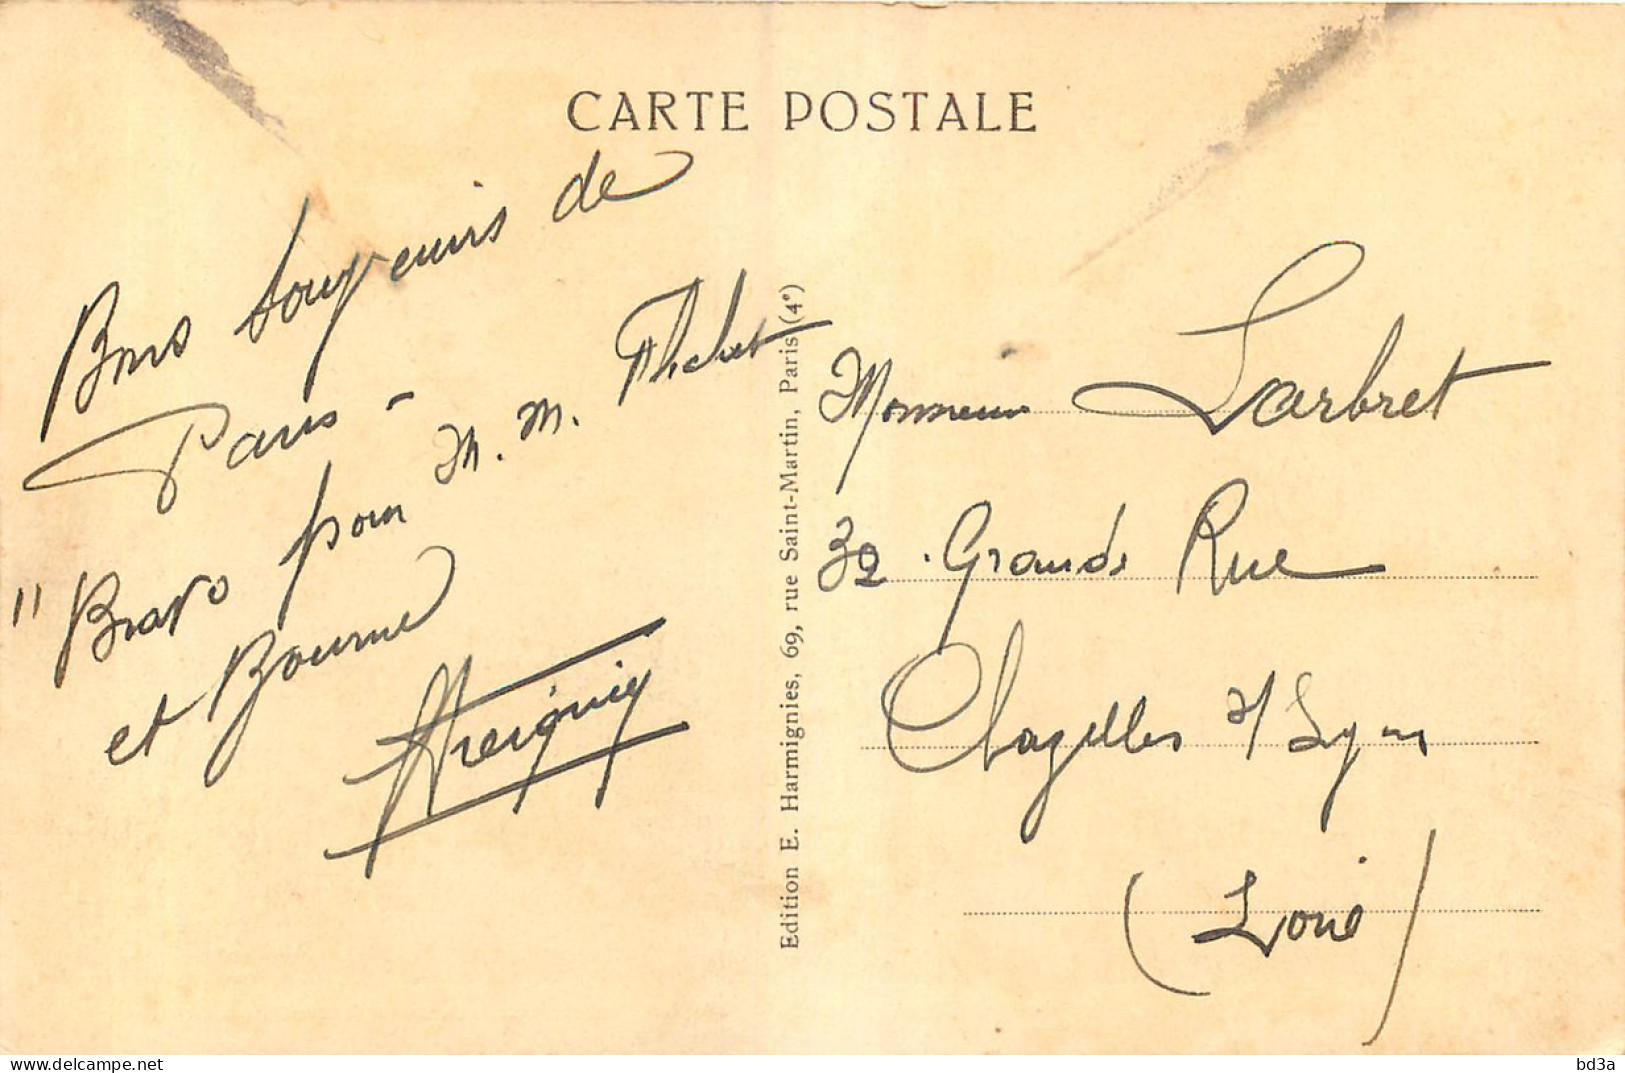 CARTE POSTALE
Bons souvenirs de
Paris -
" Bravo pour M. M.
et Bourne
Edition E. Harmignies, 69, rue Saint-Martin, Paris (4º)
Monsieur Larbret
32 . Grande Rue
Chazelles s/ Lyon
(Loire)
delcampe.net
bd3a